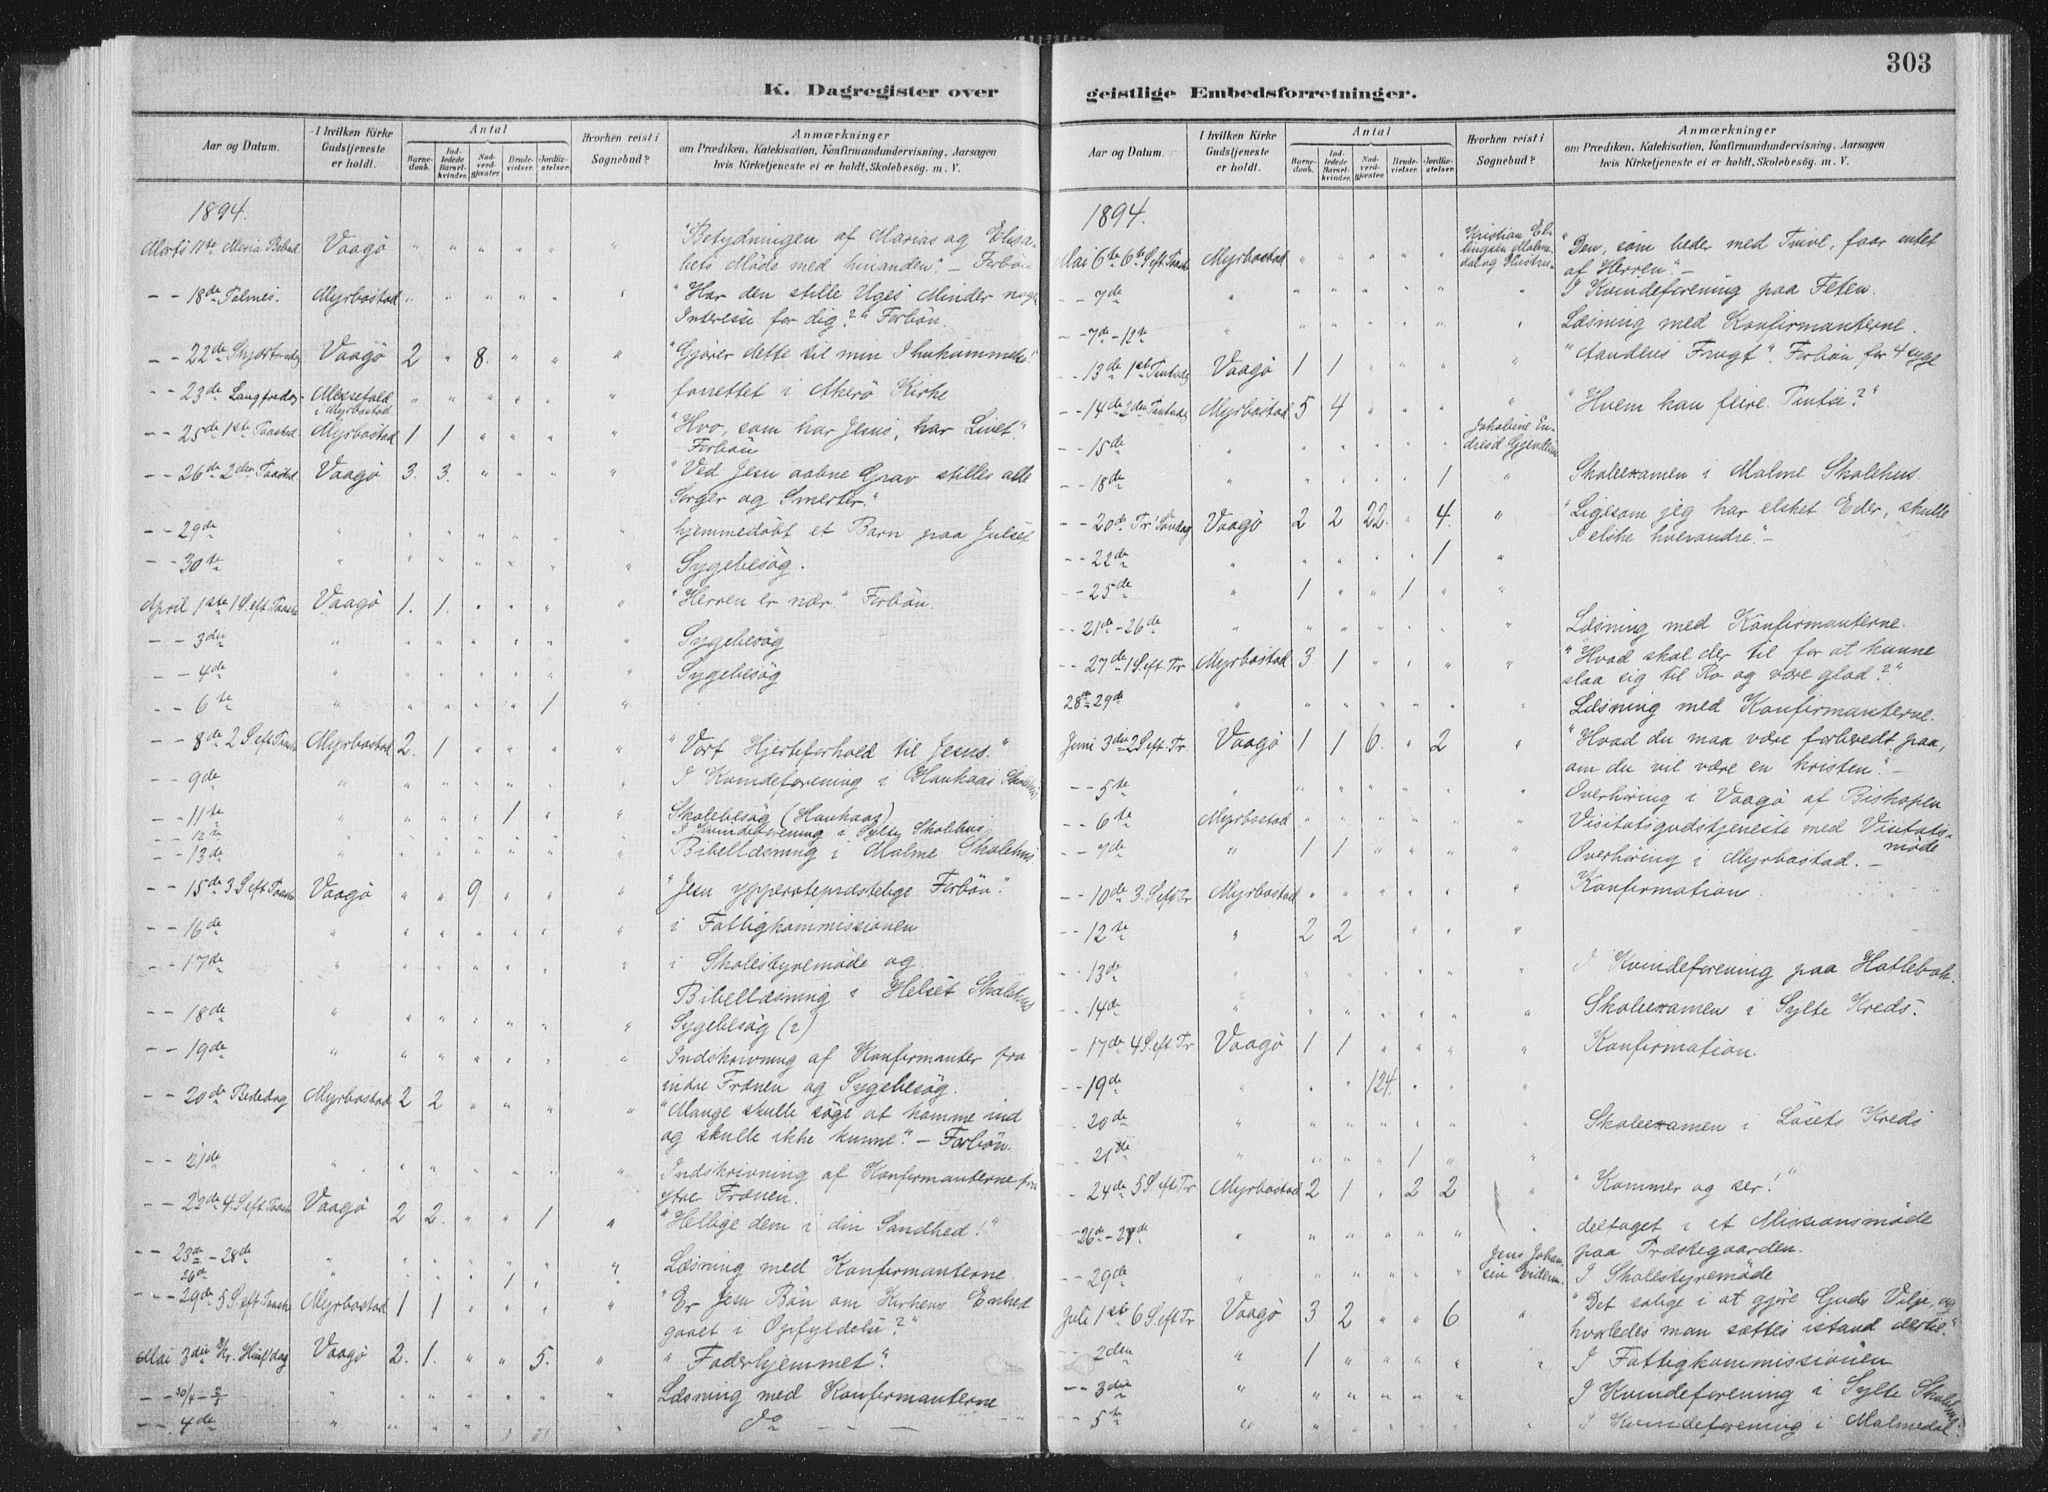 303
K. Dagregister over geistlige Embedsforretninger.
Aar og Datum.
I hvilken Kirke Gudstjeneste er holdt.
Antal
Barnedaab.
Indledede Barselkvinder.
Nadverdgjæster.
Brudevielser.
Jordfæstelser.
Hvorhen reist i Sognebud?
Anmærkninger
om Prædiken, Katekisation, Konfirmandundervisning, Aarsagen
hvis Kirketjeneste ei er holdt, Skolebesög m. V.
1894.
Marts 11te Maria Bebud. Vaagö " " " " " " "Betydningen af Marias og Elisabets Möde med hinanden." - Forbön
- - 18de Palmes. Myrbostad " " " " " " "Har den stille Uges Minder noget Interesse for dig?" Forbön.
- - 22de Skjærtorsdag Vaagö 2 " 8. " " " "Gjörer dette til min Ihukommelse."
- - 23de Langfredag Messefald i Myrbostad " " " " " " forrettet i Akerö Kirke
- - 25de 1ste Paaskd. Myrbostad 1 1 " " " " "Hvo, som har Jesus, har Livet." Forbön
- - 26de 2den Paaskd. Vaagö 3. 3. " " " " "Ved Jesu aabne Grav stilles alle Sorger og Smerter."
- - 29de " " " " " " hjemmedöbt et Barn paa Julset
- - 30te " " " " " " Sygebesög.
April 1ste 1 S. eft. Paaske Vaagö 1. 1. " " " " "Herren er nær." Forbön.
- - 3die " " " " " " " Sygebesög
- - 4de " " " " " " " Sygebesög
- - 6te " " " " " 1 "
- - 8de 2 S. eft. Paaske Myrbostad 2. 1 " " " " "Vort Hjerteforhold til Jesus."
- - 9de " " " " " " " I Kvindeforening i Haukaas Skolehus
- - 11te " " " " 1 " " Skolebesög (Haukaas)
- - 12te I Kvindeforening i Sylte Skolehus
- - 13de " " " " " " " Bibellæsning i Malme Skolehus
- - 15de 3 S. eft. Paaske Vaagö " " 9. " " " "Jesu ypperstepræstelige Forbön."
- - 16de " " " " " " " i Fattigkommissionen
- - 17de " " " " " " " i Skolestyremöde og Bibellæsning i Helset Skolehus
- - 18de " " " " " " " Sygebesög (2)
- - 19de " " " " " " " Indskrivning af Konfirmanter fra indre Frænen og Sygebesög.
- - 20de Bededag Myrbostad 2 2 " " " " "Mange skulle söge at komme ind og skulle ikke kunne." - Forbön.
- - 21de " " " " " " " Indskrivning af Konfirmanterne fra ytre Frænen.
- - 22de 4. S. eft. Paaske Vaagö 2 2. " " 1 " "Hellige dem i din Sandhed!"
- - 23de - 28de " " " " " " " Læsning med Konfirmanterne.
26de " 1
- - 29de 5 S. eft. Paaske Myrbostad 1 1 " " " " "Er Jesu Bön om Kirkens Enhed gaaet i Opfyldelse?"
Mai 3die Kr. Himlfdag Vaagö 2. 1. " " 5. " "Faderhjemmet".
- - 30/4 - 2/5 " " " " " " " Læsning med Konfirmanterne
- - 4de " " " " " Do - - -
Aar og Datum.
I hvilken Kirke Gudstjeneste er holdt.
Antal
Barnedaab.
Indledede Barselkvinder.
Nadverdgjæster.
Brudevielser.
Jordfæstelser.
Hvorhen reist i Sognebud?
Anmærkninger
om Prædiken, Katekisation, Konfirmandundervisning, Aarsagen
hvis Kirketjeneste ei er holdt, Skolebesög m. V.
1894.
Mai 6te 6te S. eft. Paaske Myrbostad " " " " " Kristian Ellingsen Malmedal og Hustru "Den, som beder med Tvivl, faar intet af Herren." -
- - 7de " " " " " " " I Kvindeforening paa Feten.
- - 7de - 12te " " " " " " Læsning med Konfirmanterne.
- - 13de 1ste Pintsedag Vaagö 1 1 " " " " "Aandens Frugt". Forbön for 4 syge
- - 14de 2den Pintsedag Myrbostad 5 4 " " " " "Hvem kan feire Pintse?"
- - 15de " " " " " " Endresd
- - 18de " " " " " 1 " Skoleexamen i Malme Skolehus.
- - 20de Tr. Söndag Vaagö 2 2 22. " 4. " "Ligesom jeg har elsket Eder, skulle I elske hverandre". -
- - 22de " " " " " 1 "
- - 25de " 1 " " 1 " "
- - 21de - 26de " " " " " " Læsning med Konfirmanterne.
- - 27de 1 S. eft. Tr. Myrbostad 3. 1 " " " " "Hvad skal der til for at kunne slaa sig til Ro og være glad?"
28de - 29de " " " " " " " Læsning med Konfirmanterne.
Juni 3die 2 S. eft. Tr. Vaagö 1 1 6. " 2 " "Hvad du maa være forberedt paa, om du vil være en kristen". -
- - 5te " " " " " " " Overhöring i Vaagö af Bishopen
- - 6te Myrbostad " " " " " " Visitatsgudstjeneste med Visitatsmöde
- - 7de " 1 1 " " " " Overhöring i Myrbostad. -
- - 10de 3. S. eft. Tr. Myrbostad " " " " " " Konfirmation.
- - 12te " 2 2 " " "
- - 13de " " " " " " " I Kvindeforening paa Hatlebak.
- - 14de " " " " " " " Skoleexamen i Sylte Kreds.
- - 17de 4 S. eft. Tr. Vaagö 1 1 " " " " Konfirmation.
- - 19de " " " 124. " " "
- - 20de " " " " " " Skoleexamen i Löset Kreds
- - 21de " " " " 1 " "
- - 24de 5 S. eft. Tr. Myrbostad 2 1 " 2 2 " "Kommer og ser!"
- - 26de - 27de " " " " " " " deltaget i et Missionsmöde paa Præstegaarden.
- - 29de " " " " " " Jens Johansen I Skolestyremöde
Juli 1ste 6 S. eft. Tr. Vaagö 3. 2 " " 6 " "Det salige i at gjöre Guds Vilje, og hvorledes man sættes istand dertil."
- - 2den " 1 " " " " " I Fattigkommissionen
- - 3die " " " " " " I Kvindeforening i Sylte Skolehus
- - 5te " " " " " " I Kvindeforening i Malmedal.